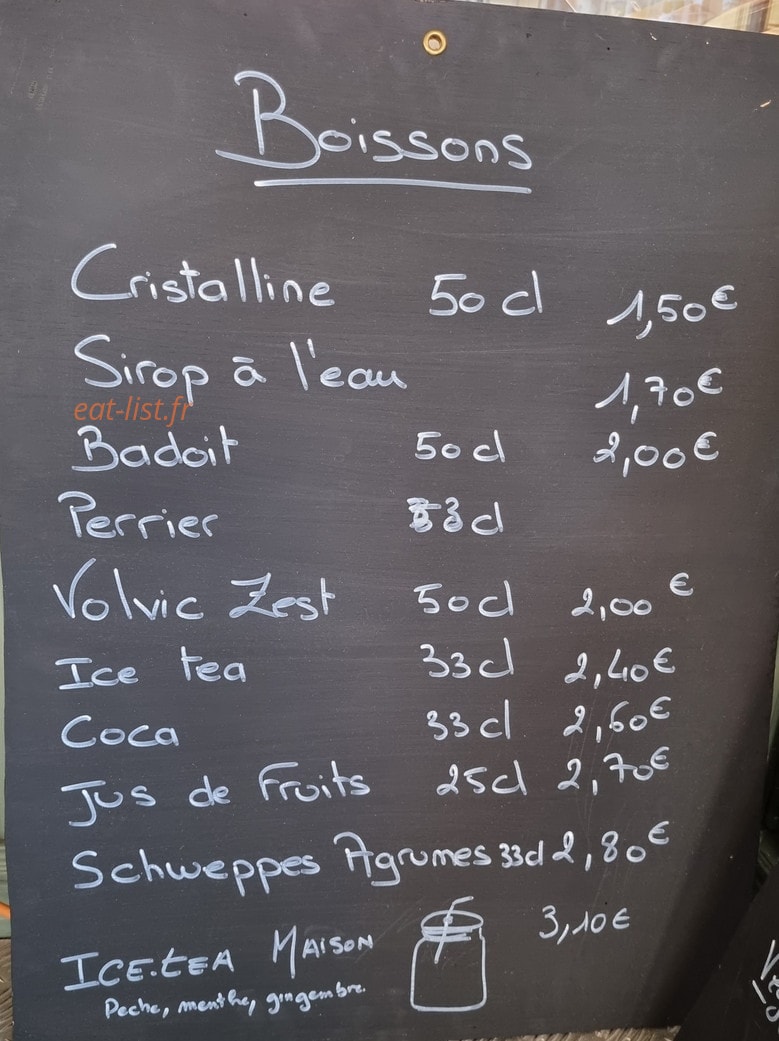 Boissons
Cristalline 50 cl 1,50€
Sirop à l'eau 1,70€
eat-list.fr
Badoit 50 cl 2,00€
Perrier 33 cl
Volvic Zest 50 cl 2,00€
Ice tea 33 cl 2,40€
Coca 33 cl 2,60€
Jus de Fruits 25 cl 2,70€
Schweppes Agrumes 33 cl 2,80€
ICE.TEA MAISON 3,10€
Peche, menthe, gingembre.